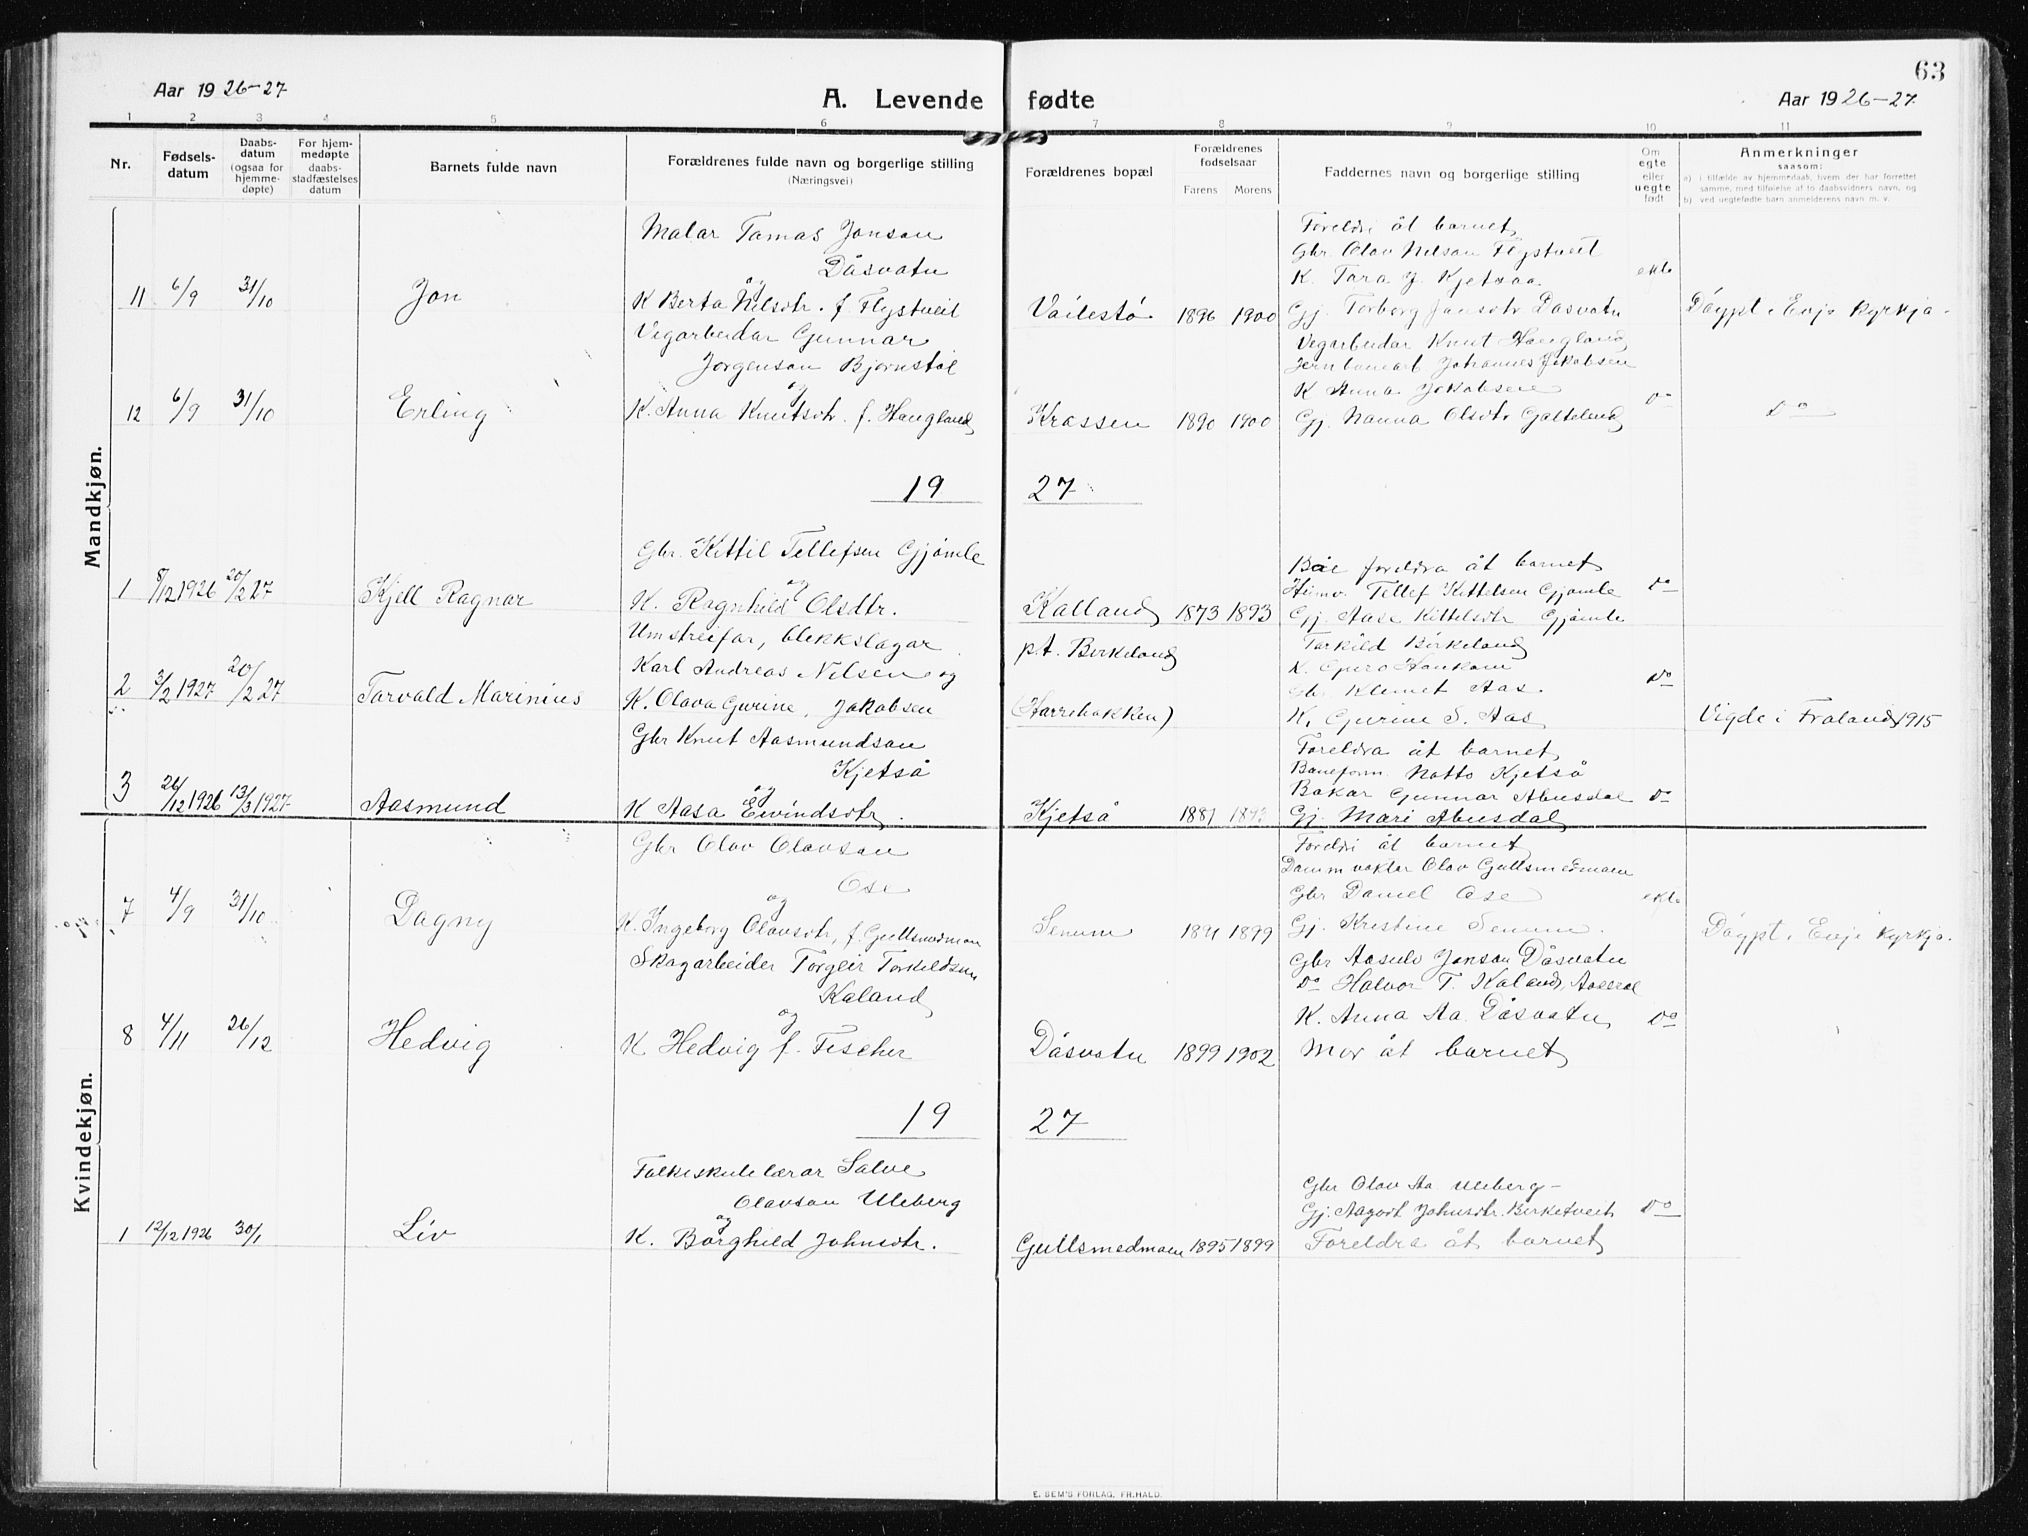 63
Aar 1926-27
A. Levende fødte
Aar 1926-27
1 2 3 4 5 6 7 8 9 10 11
Nr.
Fødselsdatum
Daabsdatum (ogsaa for hjemmedøpte)
For hjemmedøpte daabsstadfæstelses datum
Barnets fulde navn
Forældrenes fulde navn og borgerlige stilling
(Næringsvei)
Forældrenes bopæl
Forældrenes fødselsaar
Farens Morens
Faddernes navn og borgerlige stilling
Om egte eller uegte født
Anmerkninger
saasom:
a) i tilfælde av hjemmedaab, hvem der har forrettet samme, med tilføielse af to daabsvidners navn, og
b) ved uegtefødte barn anmelderens navn m. v.
Mandkjøn.
11 6/9 31/10 Jon
Malar Tomas Jonson
Dåsvatn
og
K Berta Nilsdtr. f. Flystveit
Vailestø 1896 1900
Foreldri åt barnet
Gbr. Olav Nilson Flystveit
K. Tora J. Kjetsaa
Gj. Torborg Jonsdtr Dasvatn
ekte
Døypt i Evje kyrkja.
12 6/9 31/10 Erling
Vegarbeidar Gunnar
Jorgenson Bjornstøl
og
K. Anna Knutsdtr. f. Haugland
Krossen 1890 1900
Vegarbeidar Knut Haugland
Jernbanearb Johannes Jakobsen
K Anna Jakobsen
Gj. Nanna Olsdtr Galteland
Do
Do
19 27
1 8/12 1926 20/2 27 Kjell Ragnar
Gbr. Kittil Tellefsen Gjømle
og
K. Ragnhild Olsdtr.
Kalland 1873 1893
Båe foreldra åt barnet
Heimv. Tellef Kittelsen Gjømle
Gj. Aase Kittelsdtr Gjømle
Do
2 3/2 1927 20/2 27 Torvald Marinius
Umstreifar, blekkslagar
Karl Andreas Nilsen og
K. Olava Gurine, Jakobsen
pt. Birkeland
(Harrebakken)
Torkild Birkeland
K. Guro Haukom
Gbr. Klemet Aas.
K. Gurine S. Aas
Do
Vigde i Froland 1915
3 26/12 1926 13/3 1927 Aasmund
Gbr Knut Aasmundson
Kjetså
og
K Aasa Eivindsdtr.
Kjetså 1881
Foreldra åt barnet
Baneform. Notto Kjetså
Bakar Gunnar Abusdal
Gj. Mari Abusdal
Do
Kvindekjøn.
7 4/9 31/10 Dagny
Gbr Olav Olavson
Ose
og
K. Ingeborg Olavsdtr, f. Gullsmedmoen
Senum 1891 1899
Foreldri åt barnet
Dammvaktar Olav Gullsmedmoen
Gbr Daniel Ose
Gj. Kristine Senum.
ekte
Døypt i Evje kyrkja.
8 4/11 26/12 Hedvig
Skogarbeider Torgeir Torkildsen
Kaland
og
K Hedvig f. Fischer
Dåsvatn 1899 1902
Gbr Aasulv Jonson Dåsvatn
Do Halvor T. Kaland, Aaseral
K. Anna Aa. Dåsvatn
Mor åt barnet
Do
19 27
1 12/12 1926 30/1 Liv
Folkeskulelærar Salve
Olavson Uleberg
og
K. Borghild Johnsdtr.
Gullsmedmoen 1895 1899
Gbr Olav Aa. Uleberg-
Gj. Aagodt Johnsdtr. Birketveit
Foreldra åt barnet
Do
E. SEM'S FORLAG, FR.HALD.